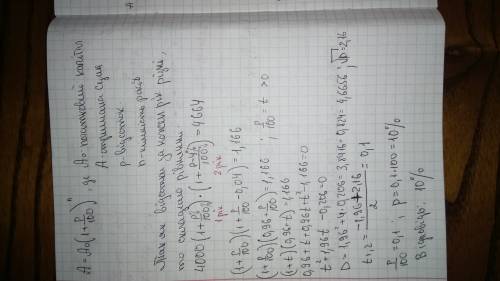 A = A₀(1 + p/100)ⁿ, де A₀ - початковий капітал
A - отримана сума
p - відсоток
n - кількість років
Так як відсотки за кожен рік різні,
то складемо рівняння
4000 (1 + p/100) · (1 + (p-4)/100) = 4664
1 рік 2 рік
(1 + p/100)(1 + p/100 - 0,04) = 1,166
(1 + p/100)(0,96 + p/100) = 1,166 ; p/100 = t >0
(1 + t)(0,96 + t) = 1,166
0,96 + t + 0,96t + t² - 1,166 = 0
t² + 1,96t - 0,206 = 0
D = 1,96² - 4·(-0,206) = 3,8416 + 0,824 = 4,6656 ; √D = 2,16
t₁,₂ = (-1,96 + 2,16)/2 = 0,1
p/100 = 0,1 ; p = 0,1·100 = 10%
Відповідь: 10%